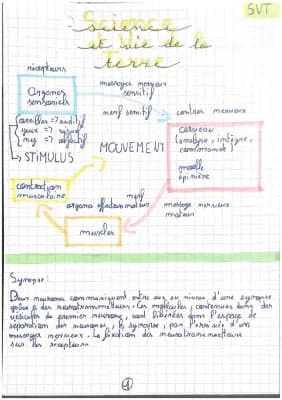 SVT
Science
et vie de la
terre
récepteurs
Organes
sensoriels
message nerveux
sensitif
nerf sensitif
centres nerveux
oreilles => auditif
yeux => visuel
nez => olfactif
STIMULUS
MOUVEMENT
cerveau
(analyse, intègre,
commande)
moelle
épinière
contraction
musculaire
nerf
moteur
organe effecteur
message nerveux
moteur
muscles
Synapse:
Deux neurones communiquent entre eux au niveau d'une synapse
grâce à des neurotransmetteurs. Ces molécules, contenues dans des
vésicules du premier neurone, sont libérées dans l'espace de
séparation des neurones, la synapse, par l'arrivée d'un
message nerveux. La fixation des neurotransmetteurs
sur les récepteurs
1